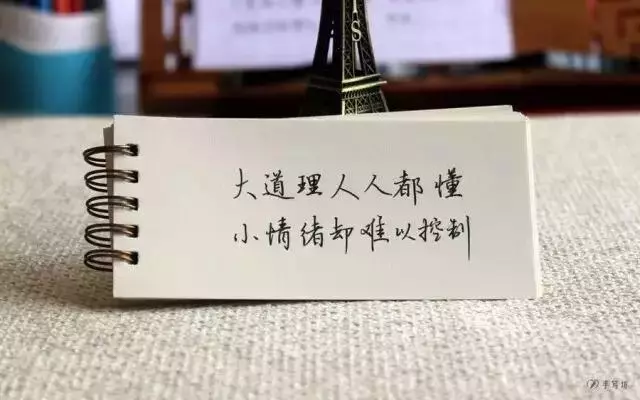 大道理人人都懂
小情绪却难以控制
IS
手写坊